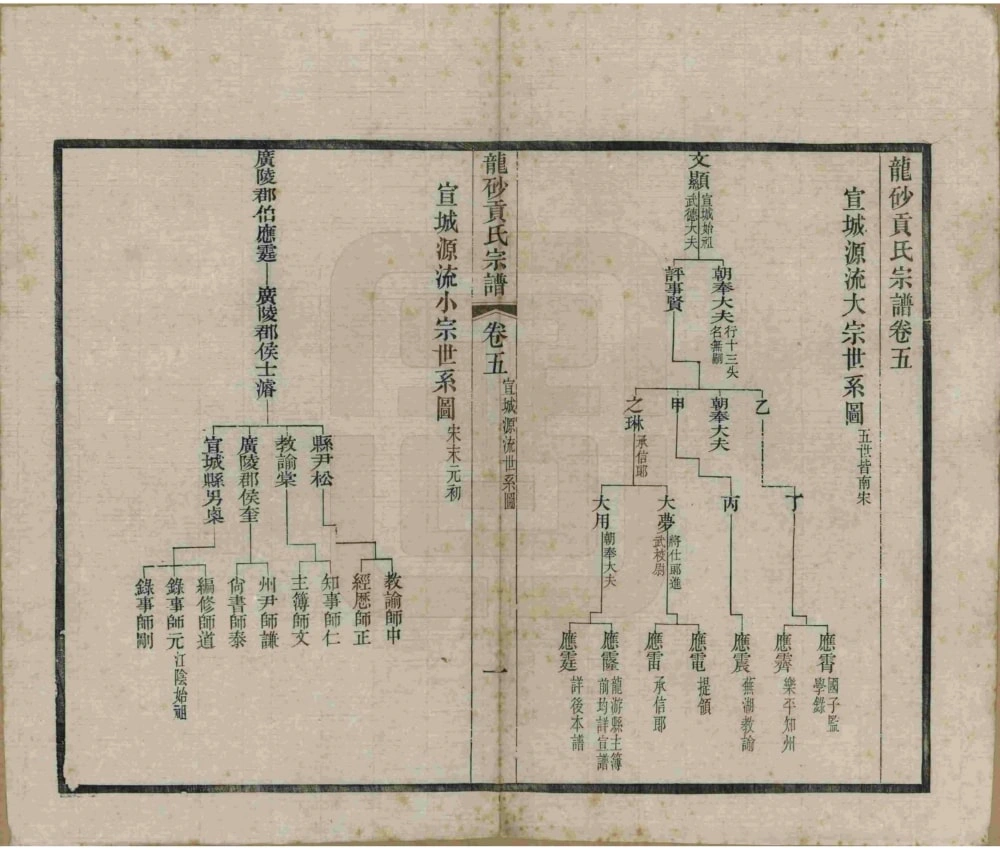 龍砂貢氏宗譜卷五
宣城源流大宗世系圖
五世皆南宋
文顯
宣城始祖
武德大夫
朝奉大夫
行十三失
名無嗣
評事賢
乙
朝奉大夫
甲
之琳
承信郎
丁
丙
大夢
將仕郎進
大用
朝奉大夫
應霄
國子監
學錄
應霽
樂平知州
應震
蕪湖教諭
應電
提領
應雷
承信郎
應霳
龍游縣主簿
前均詳宣譜
應霆
詳後本譜
龍砂貢氏宗譜
卷五
宣城源流世系圖
一
宣城源流小宗世系圖
宋末元初
廣陵郡伯應霆
廣陵郡侯士濬
縣尹松
教諭棠
廣陵郡侯奎
宣城縣男㮚
教諭師中
經歷師正
知事師仁
主簿師文
州尹師謙
尙書師泰
編修師道
錄事師元
江陰始祖
錄事師剛